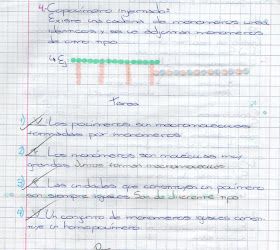 4. Copolímero injertado:
Existe una cadena de monomeros
identicos y se le adjuntan monomeros
de otro tipo.
↳ Ej:
Tarea
1) Los polímeros son macromoleculas
formadas por monomeros.
2) Los monómeros son moléculas muy
grandes
3) Las unidades que construyen un polímero
son siempre iguales Son de diferente tipo
4) Un conjunto de monomeros iguales constru-
ye un homopolímero